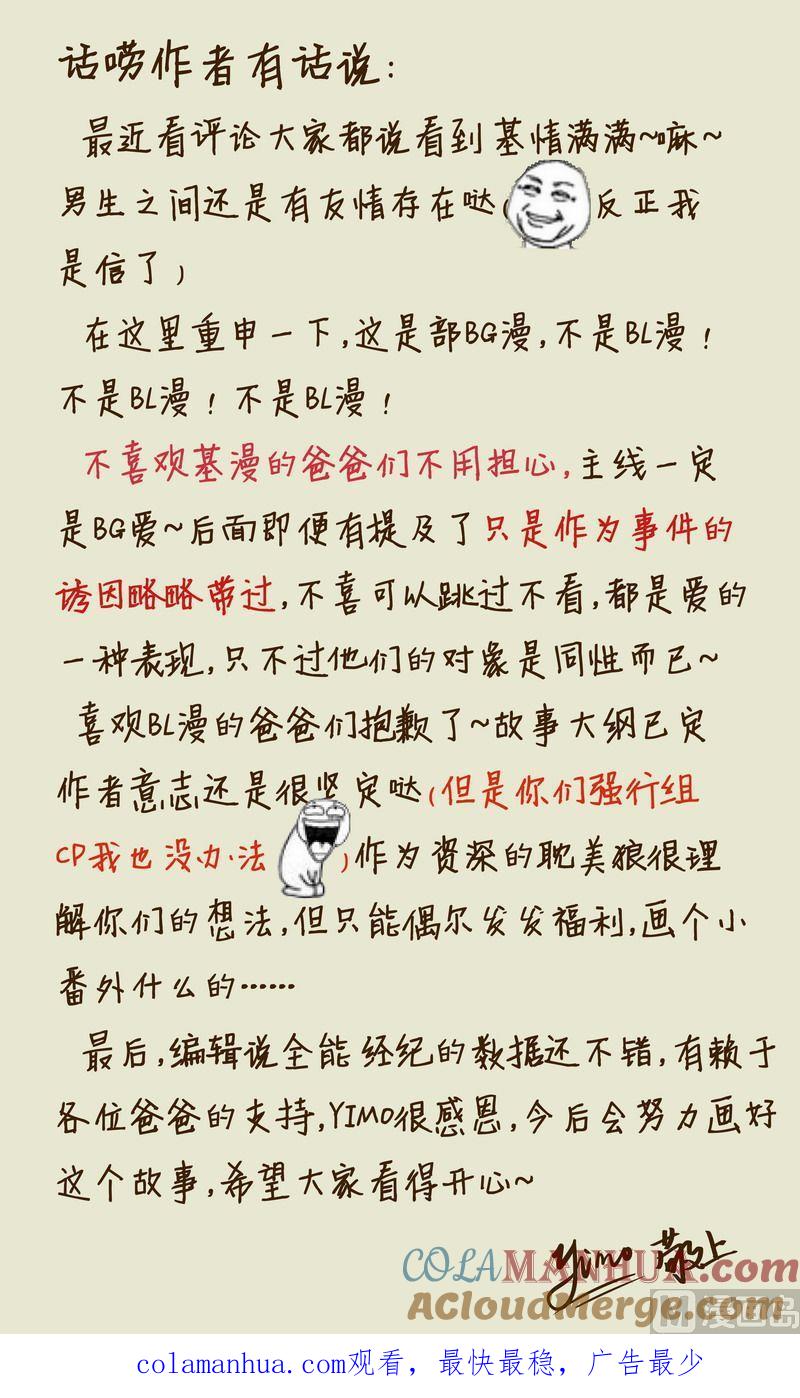 话唠作者有话说:
最近看评论大家都说看到基情满满~嘛~
男生之间还是有友情存在哒(反正我
是信了)
在这里重申一下,这是部BG漫,不是BL漫!
不是BL漫!不是BL漫!
不喜欢基漫的爸爸们不用担心,主线一定
是BG爱~后面即便有提及了只是作为事件的
诱因略略带过,不喜可以跳过不看,都是爱的
一种表现,只不过他们的对象是同性而已~
喜欢BL漫的爸爸们抱歉了~故事大纲已定
作者意志还是很坚定哒(但是你们强行组
CP我也没办法)作为资深的耽美狼很理
解你们的想法,但只能偶尔发发福利,画个小
番外什么的……
最后,编辑说全能经纪的数据还不错,有赖于
各位爸爸的支持,YIMO很感恩,今后会努力画好
这个故事,希望大家看得开心~
yimo 敬上
COLAMANHUA.com
ACloudMerge.com
M 漫画岛
colamanhua.com观看，最快最稳，广告最少